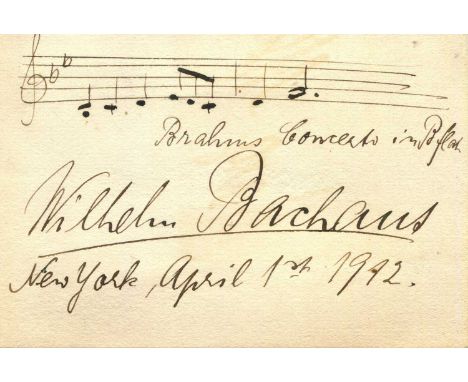 Brahms Concerto in Bflat
Wilhelm Bachaus
New York, April 1st 1912.